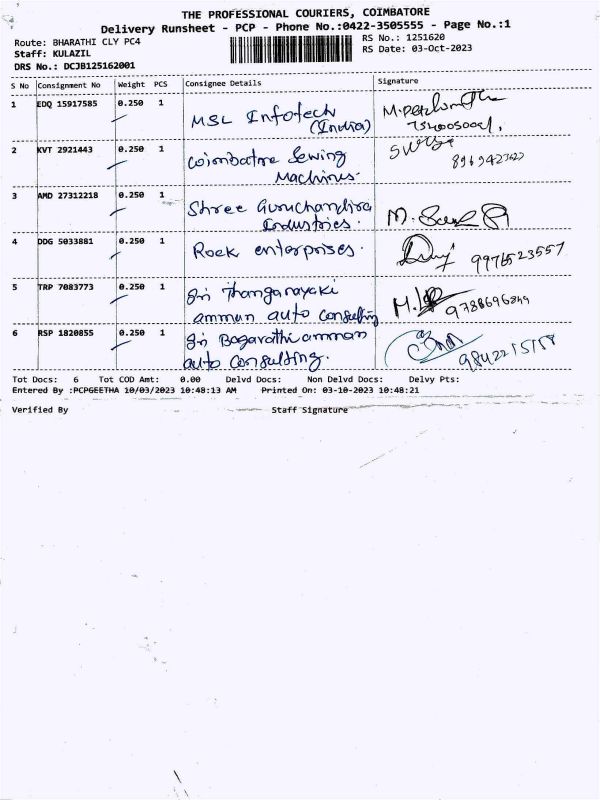 THE PROFESSIONAL COURIERS, COIMBATORE
Delivery Runsheet - PCP - Phone No.:0422-3505555 - Page No.:1
Route: BHARATHI CLY PC4
RS No.: 1251620
Staff: KULAZIL
RS Date: 03-Oct-2023
DRS No.: DCJB125162001
S No Consignment No Weight PCS Consignee Details Signature
1 EDQ 15917585 0.250 1 MSL Infotech
(India)
2 KVT 2921443 0.250 1 Coimbatore Sewing
Machines.
3 AMD 27312218 0.250 1 Shree Guruchandira
Industries.
M.
4 DDG 5033881 0.250 1 Rock enterprises.
5 TRP 7083773 0.250 1 Sri Thanganayaki
amman auto consulting
9788696849
6 RSP 1820855 0.250 1 Sri Bagavathi amman
auto consulting.
Tot Docs: 6 Tot COD Amt: 0.00 Delvd Docs: Non Delvd Docs: Delvy Pts:
Entered By :PCPGEETHA 10/03/2023 10:48:13 AM Printed On: 03-10-2023 10:48:21
Verified By Staff Signature